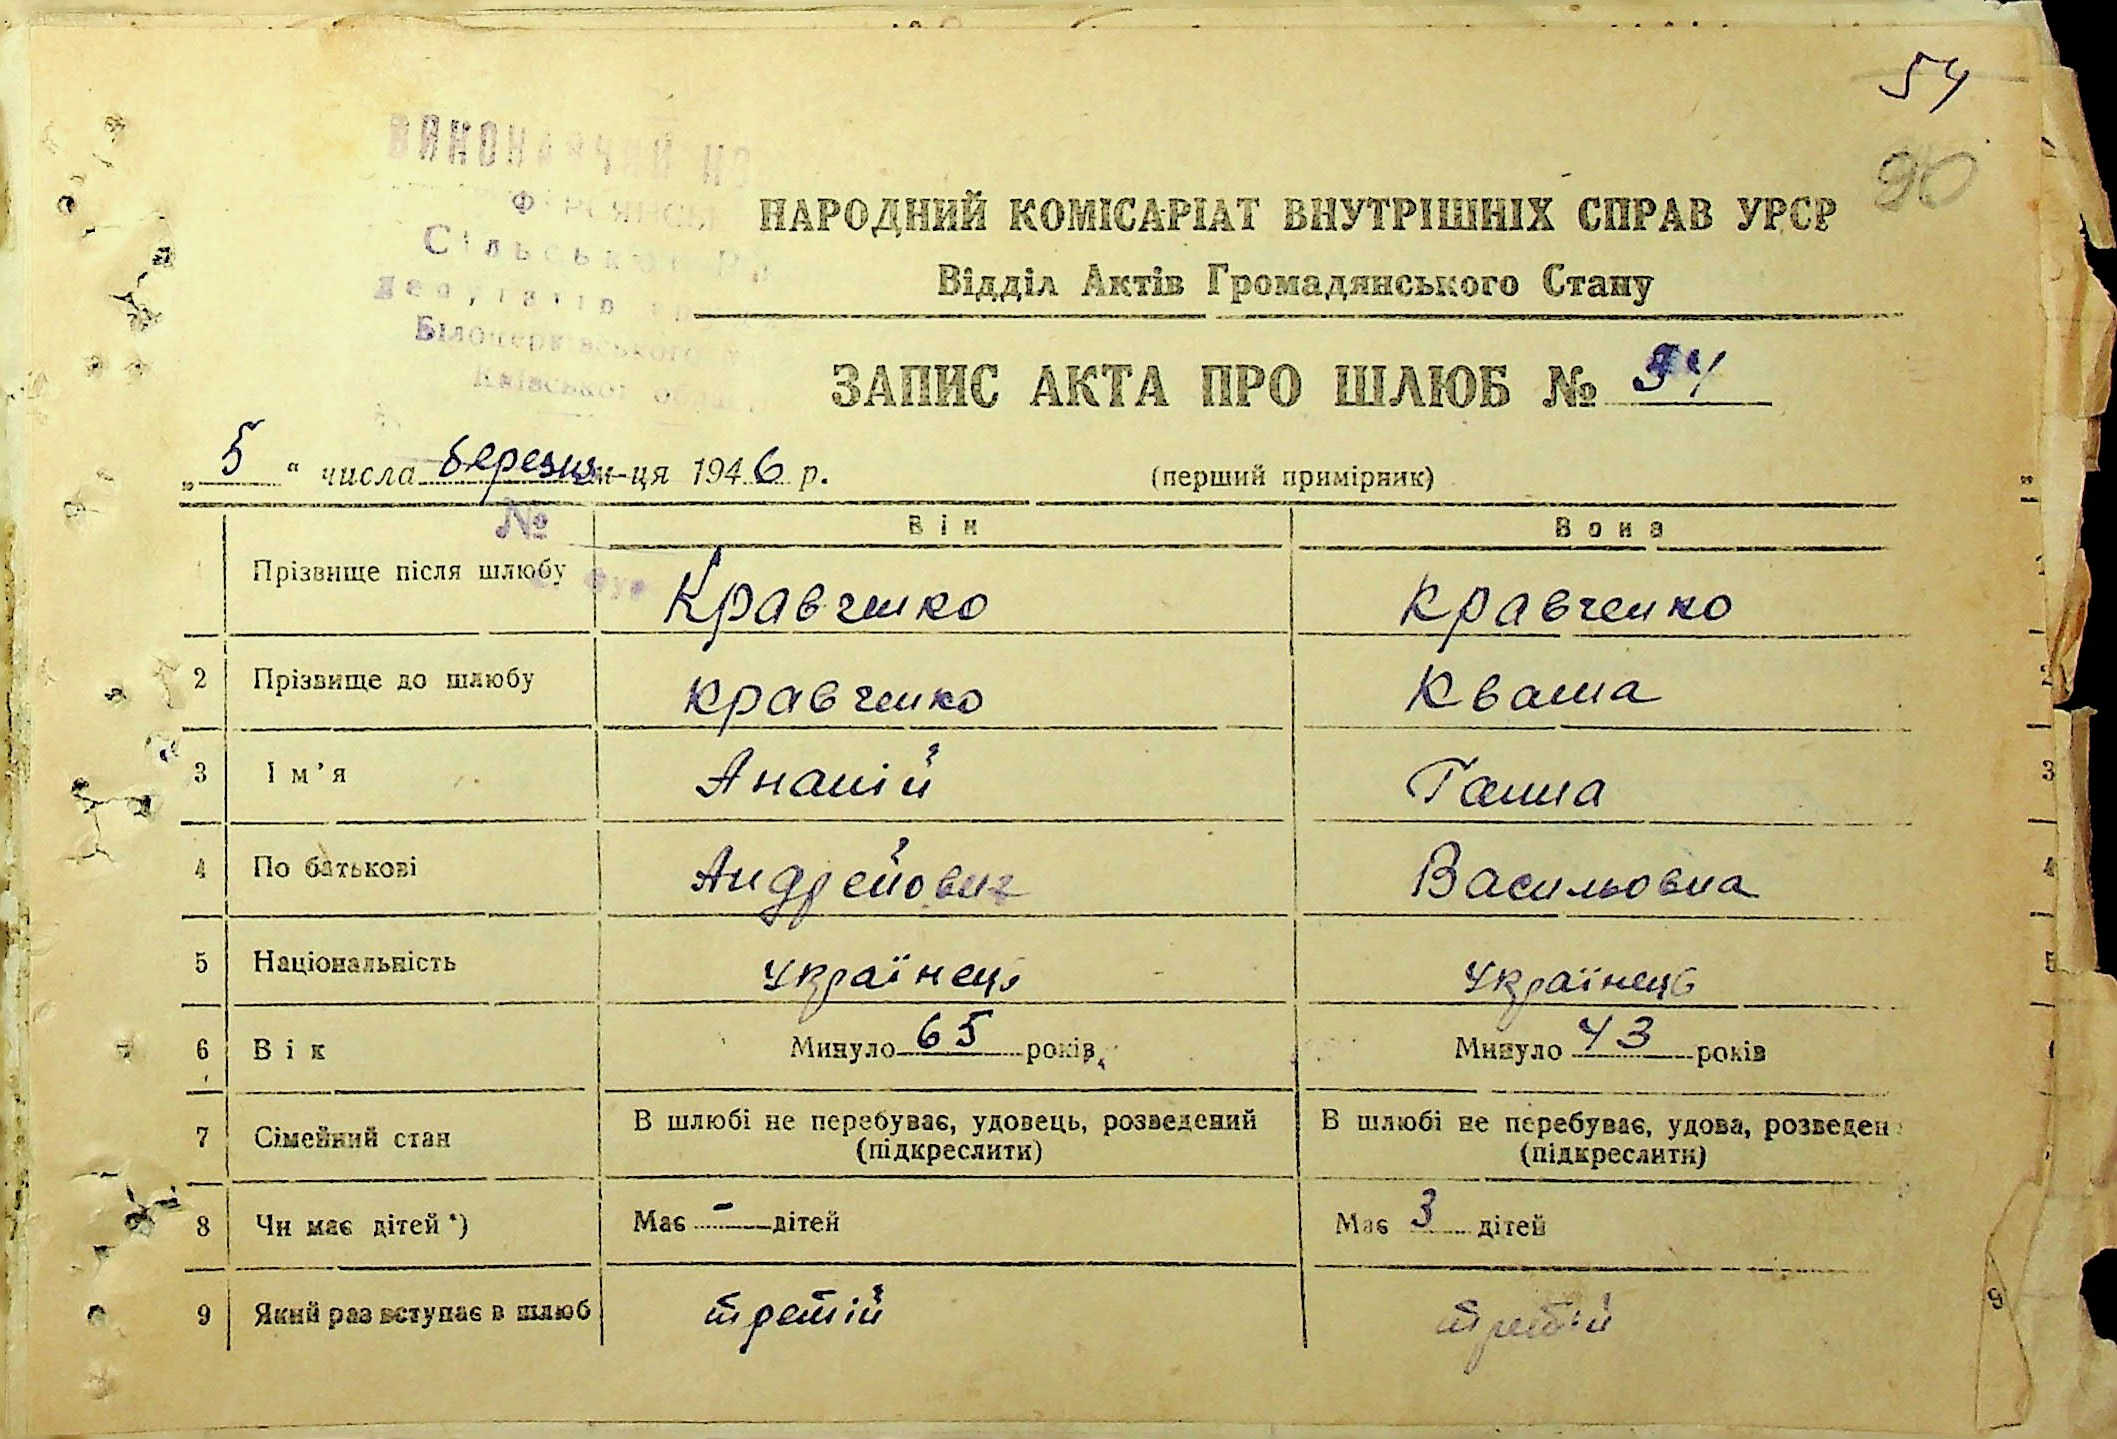 54
90
ВИКОНАВЧИЙ
Сільської
депутатів
Білоцерківського
Київської
НАРОДНИЙ КОМІСАРІАТ ВНУТРІШНІХ СПРАВ УРСР
Відділ Актів Громадянського Стану
ЗАПИС АКТА ПРО ШЛЮБ №
„ 5 " числа березня м-ця 1946 р. (перший примірник)
№
Він Вона
Прізвище після шлюбу Кравченко Кравченко
2 Прізвище до шлюбу Кравченко Кваша
3 Ім'я Ананій Ганна 3
4 По батькові Андрейович Васильовна 4
5 Національність українець українець 5
6 Вік Минуло 65 років Минуло 43 років
7 Сімейний стан В шлюбі не перебуває, удовець, розведений В шлюбі не перебуває, удова, розведен
(підкреслити) (підкреслити)
8 Чи має дітей*) Має - дітей Має 3 дітей
9 Який раз вступає в шлюб третій третій 9